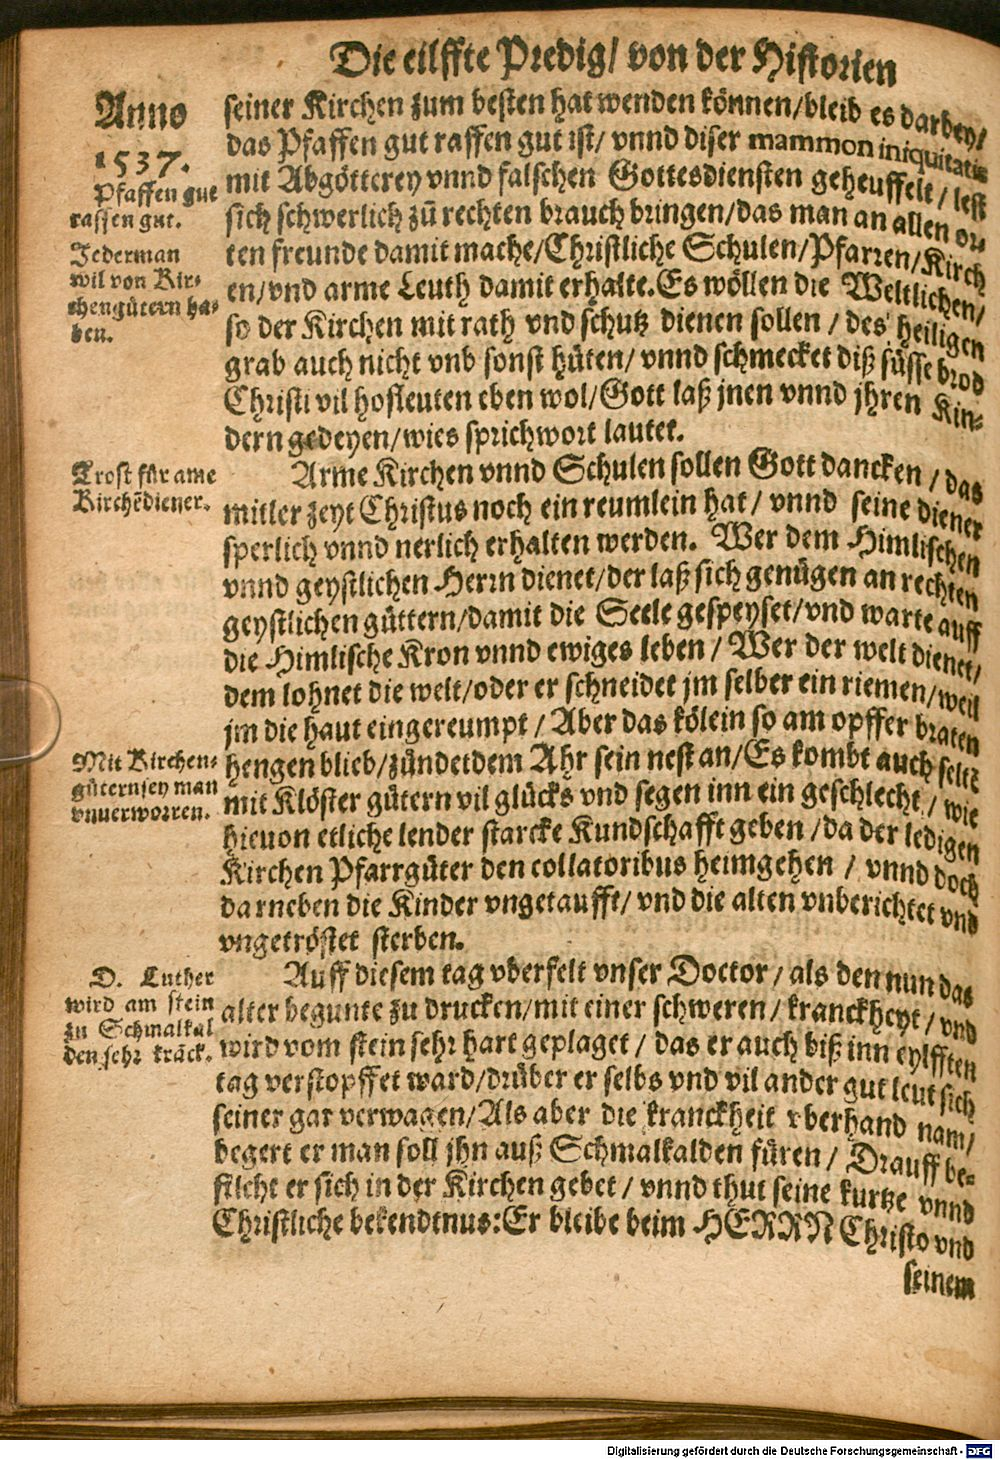 Die eilffte Predig/ von der Historien
Anno
1537.
Pfaffen gut
raffen gut.
Jederman
wil von Kir-
chengütern ha-
ben.
seiner Kirchen zum besten hat wenden können/bleib es darbey/
das Pfaffen gut raffen gut ist/ vnnd diser mammon iniquitatis
mit Abgötterey vnnd falschen Gottesdiensten geheuffelt/ lest
sich schwerlich zů rechten brauch bringen/das man an allen or-
ten freunde damit mache/Christliche Schulen/Pfarren/Kirch
en/vnd arme Leuth damit erhalte. Es wöllen die Weltlichen/
so der Kirchen mit rath vnd schutz dienen sollen / des heiligen
grab auch nicht vnb sonst hüten/ vnnd schmecket diß süsse brod
Christi vil hofleuten eben wol/Gott laß jnen vnnd jhren Kin-
dern gedeyen/wies sprichwort lautet.
Trost für arme
Kirchẽdiener.
Arme Kirchen vnnd Schulen sollen Gott dancken / das
mitler zeyt Christus noch ein reumlein hat/ vnnd seine diener
sperlich vnnd nerlich erhalten werden. Wer dem Himlischen
vnnd geystlichen Herrn dienet/der laß sich genügen an rechten
geystlichen güttern/damit die Seele gespeyset/vnd warte auff
die Himlische Kron vnnd ewiges leben / Wer der welt dienet/
dem lohnet die welt/oder er schneidet jm selber ein riemen/weil
jm die haut eingereumpt / Aber das kölein so am opffer braten
hengen blieb/zündet dem Ahr sein nest an/Es kombt auch seltẽ
mit Klöster gütern vil glücks vnd segen inn ein geschlecht / wie
hieuon etliche lender starcke Kundschafft geben /da der ledigen
Kirchen Pfarrgüter den collatoribus heimgehen / vnnd doch
darneben die Kinder vngetaufft/ vnd die alten vnberichtet vnd
vngetröstet sterben.
Mit Kirchen-
gütern sey man
vnuerworren.
D. Luther
wird am stein
zu Schmalkal
den sehr kräck.
Auff diesem tag vberfelt vnser Doctor / als den nun das
alter begunte zu drucken/mit einer schweren / kranckheyt / vnd
wird vom stein sehr hart geplaget / das er auch biß inn eylfften
tag verstopffet ward/drüber er selbs vnd vil ander gut leut sich
seiner gar verwagen/Als aber die kranckheit vberhand nam/
begert er man soll jhn auß Schmalkalden füren / Drauff be-
filcht er sich in der Kirchen gebet / vnnd thut seine kurtze vnnd
Christliche bekendtnus:Er bleibe beim HERRN Christo vnd
seinem
Digitalisierung gefördert durch die Deutsche Forschungsgemeinschaft - DFG